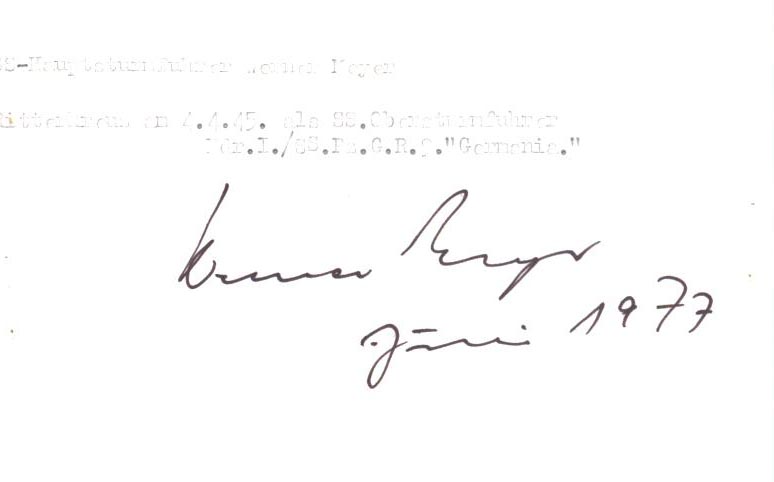 SS-Hauptsturmführer Werner Meyer
Ritterkreuz am 4.4.45. als SS.Obersturmführer
Fdr.I./SS.Pz.G.R.9."Germania."
Werner Meyer
Juni 1977